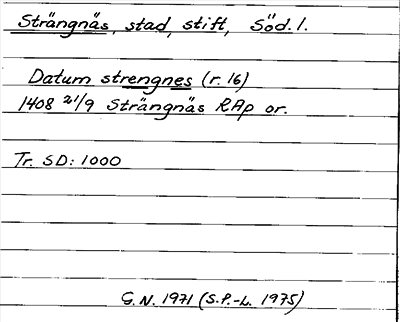 Strängnäs, stad, stift, Söd. l.
Datum strengnes (r. 16)
1408 21/9 Strängnäs RAp or.
Tr. SD: 1000
G.N. 1971 (S.P.-L. 1975)